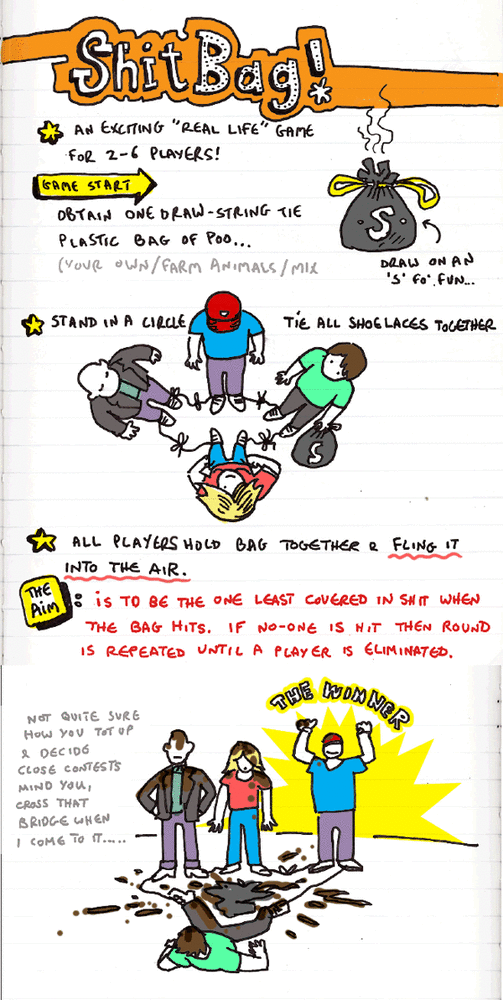 Shit Bag!
AN EXCITING "REAL LIFE" GAME
FOR 2-6 PLAYERS!
GAME START
OBTAIN ONE DRAW-STRING TIE
PLASTIC BAG OF POO...
(YOUR OWN/FARM ANIMALS/MIX
S
DRAW ON AN
'S' FO' FUN...
STAND IN A CIRCLE
TIE ALL SHOELACES TOGETHER
S
ALL PLAYERS HOLD BAG TOGETHER & FLING IT
INTO THE AIR.
THE AIM
: IS TO BE THE ONE LEAST COVERED IN SHIT WHEN
THE BAG HITS. IF NO-ONE IS HIT THEN ROUND
IS REPEATED UNTIL A PLAYER IS ELIMINATED.
THE WINNER
NOT QUITE SURE
HOW YOU TOT UP
& DECIDE
CLOSE CONTESTS
MIND YOU,
CROSS THAT
BRIDGE WHEN
I COME TO IT.....